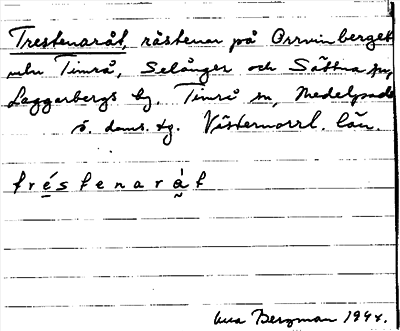 Trestenaröset, råstenar på Orrvinberget
mln Timrå, Selånger och Sättna snr,
Laggarbergs by, Timrå sn, Medelpads
ö. doms. tg. Västernorrl. län.
t r é s t e n a r à t
Bergman 1944.